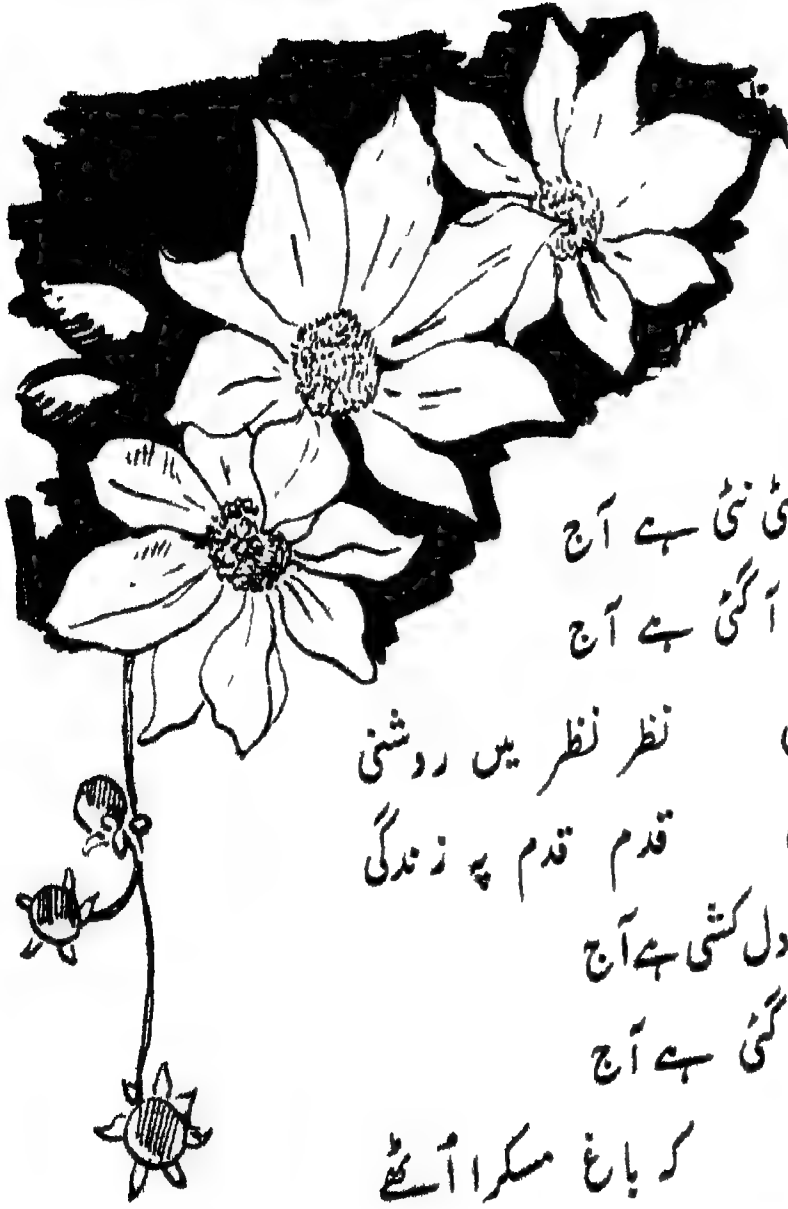 نئی ہے آج
آ گئی ہے آج
نظر نظر میں روشنی
قدم قدم پہ زندگی
دل کشی ہے آج
گئی ہے آج
کہ باغ مسکرا اُٹھے